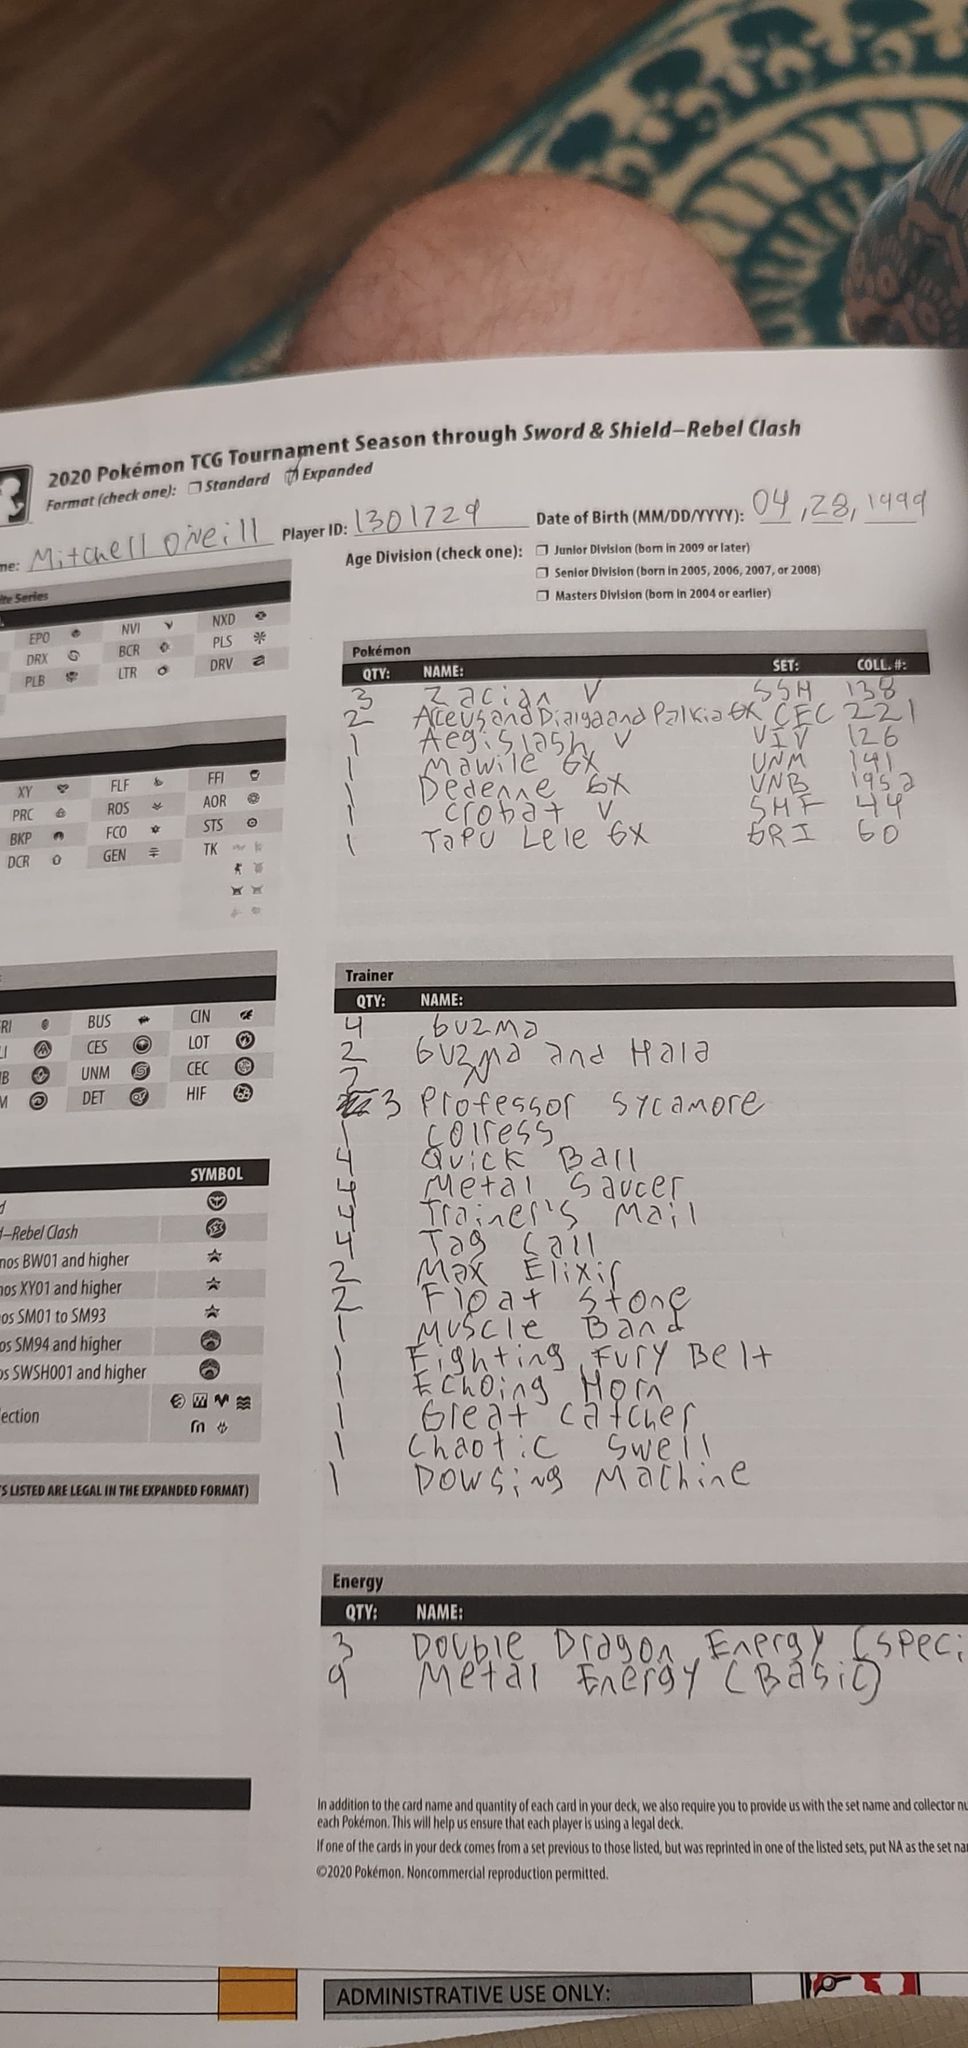 2020 Pokémon TCG Tournament Season through Sword & Shield–Rebel Clash
Format (check one): Standard Expanded
me: Mitchell O'neill Player ID: 1301729 Date of Birth (MM/DD/YYYY): 04, 28, 1999
Age Division (check one): Junior Division (born in 2009 or later)
Senior Division (born in 2005, 2006, 2007, or 2008)
Masters Division (born in 2004 or earlier)
ite Series
EPO NVI NXD
DRX BCR PLS
PLB LTR DRV
XY FLF FFI
PRC ROS AOR
BKP FCO STS
DCR GEN TK
RI BUS CIN
LI CES LOT
B UNM CEC
M DET HIF
SYMBOL
d
d–Rebel Clash
mos BW01 and higher
mos XY01 and higher
os SM01 to SM93
os SM94 and higher
os SWSH001 and higher
ection
S LISTED ARE LEGAL IN THE EXPANDED FORMAT)
Pokémon
QTY: NAME: SET: COLL. #:
3 Zacian V SSH 138
2 Arceus and Dialga and Palkia GX CEC 221
1 Aegislash V VIV 126
1 Mawile GX UNM 141
1 Dedenne GX UNB 195a
1 Crobat V SHF 44
1 Tapu Lele GX GRI 60
Trainer
QTY: NAME:
4 Guzma
2 Guzma and Hala
2 N
3 Professor Sycamore
1 Colress
4 Quick Ball
4 Metal Saucer
4 Trainer's Mail
4 Tag Call
2 Max Elixir
2 Float Stone
1 Muscle Band
1 Fighting Fury Belt
1 Echoing Horn
1 Great Catcher
1 Chaotic Swell
1 Dowsing Machine
Energy
QTY: NAME:
3 Double Dragon Energy (Speci
9 Metal Energy (Basic)
In addition to the card name and quantity of each card in your deck, we also require you to provide us with the set name and collector nu
each Pokémon. This will help us ensure that each player is using a legal deck.
If one of the cards in your deck comes from a set previous to those listed, but was reprinted in one of the listed sets, put NA as the set na
©2020 Pokémon. Noncommercial reproduction permitted.
ADMINISTRATIVE USE ONLY: